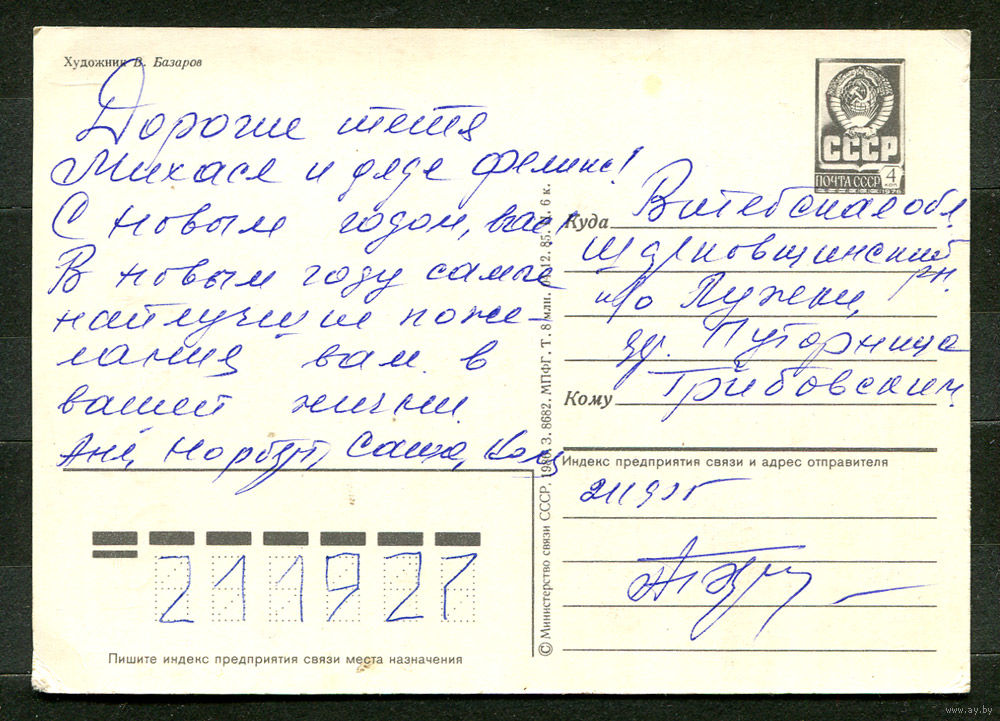 Художник В. Базаров
Дорогие тетя
Михася и дядя Феликс!
С новым годом, вас
В новым году самые
найлучшии поже-
лания вам в
вашей жизни
Аня, Норбут, Саша, Коля
211927
Пишите индекс предприятия связи места назначения
© Министерство связи СССР, 1980. З. 8682. МПФГ. Т. 8 млн. 12. 85. Ц. 6 к.
СССР
ПОЧТА СССР 4 КОП
1976
Куда Витебская обл
Шарковщинский
рн.
п/о Лужки,
др. Путорница
Кому Грибовским
Индекс предприятия связи и адрес отправителя
www.ay.by